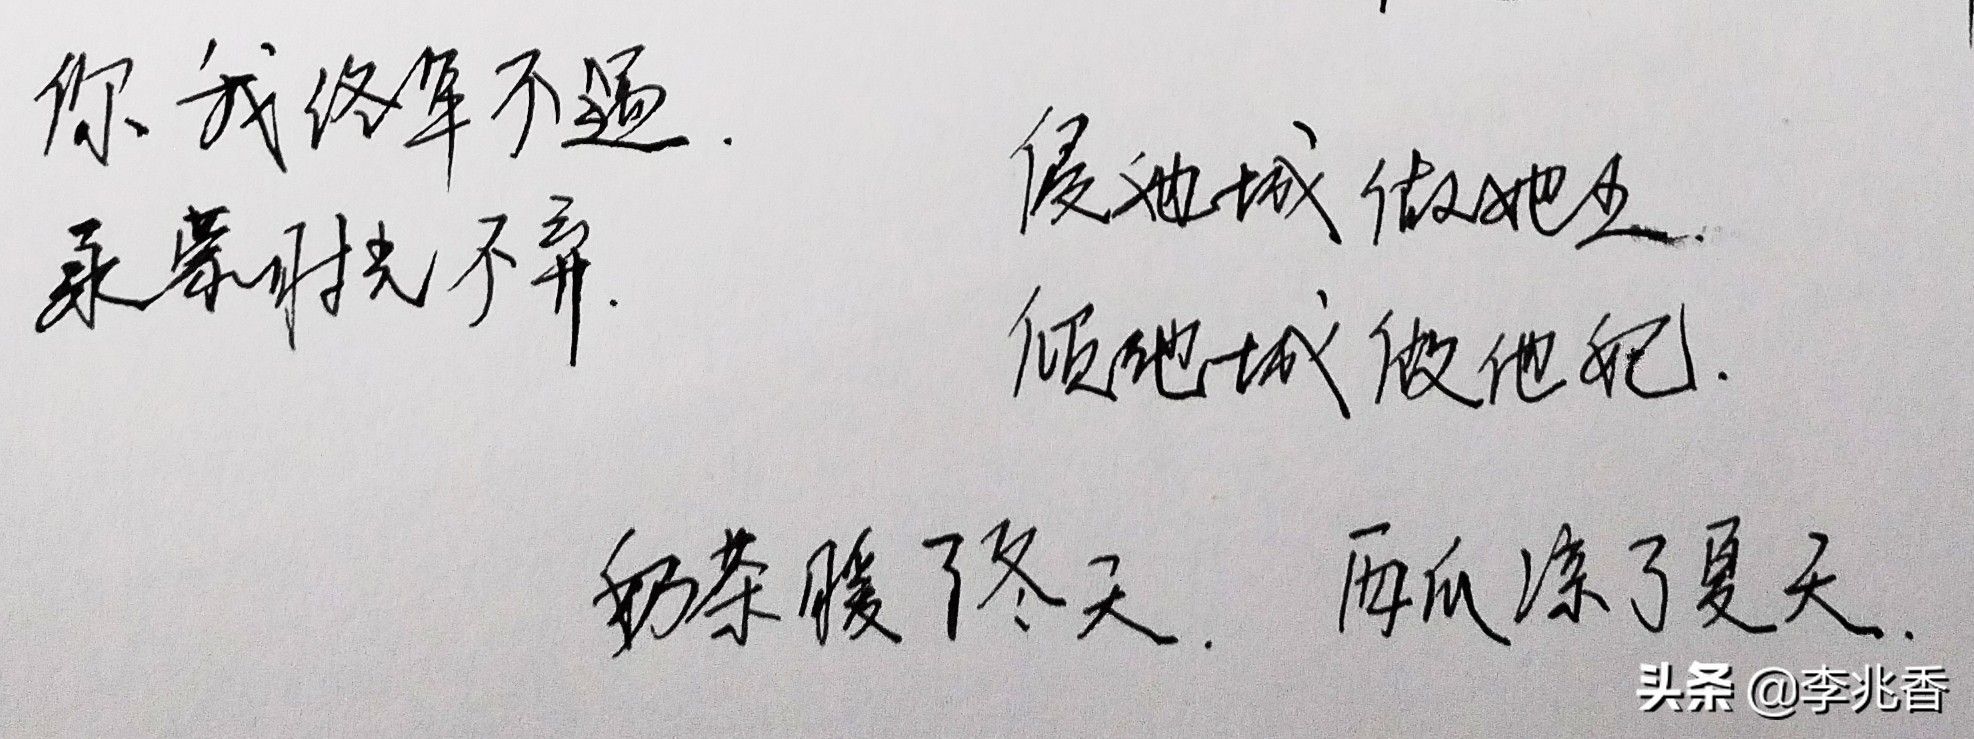 你我终年不遇.
承蒙时光不弃.
侵她城做她王.
倾她城做他妃.
奶茶暖了冬天. 西瓜凉了夏天.
头条 @李兆香